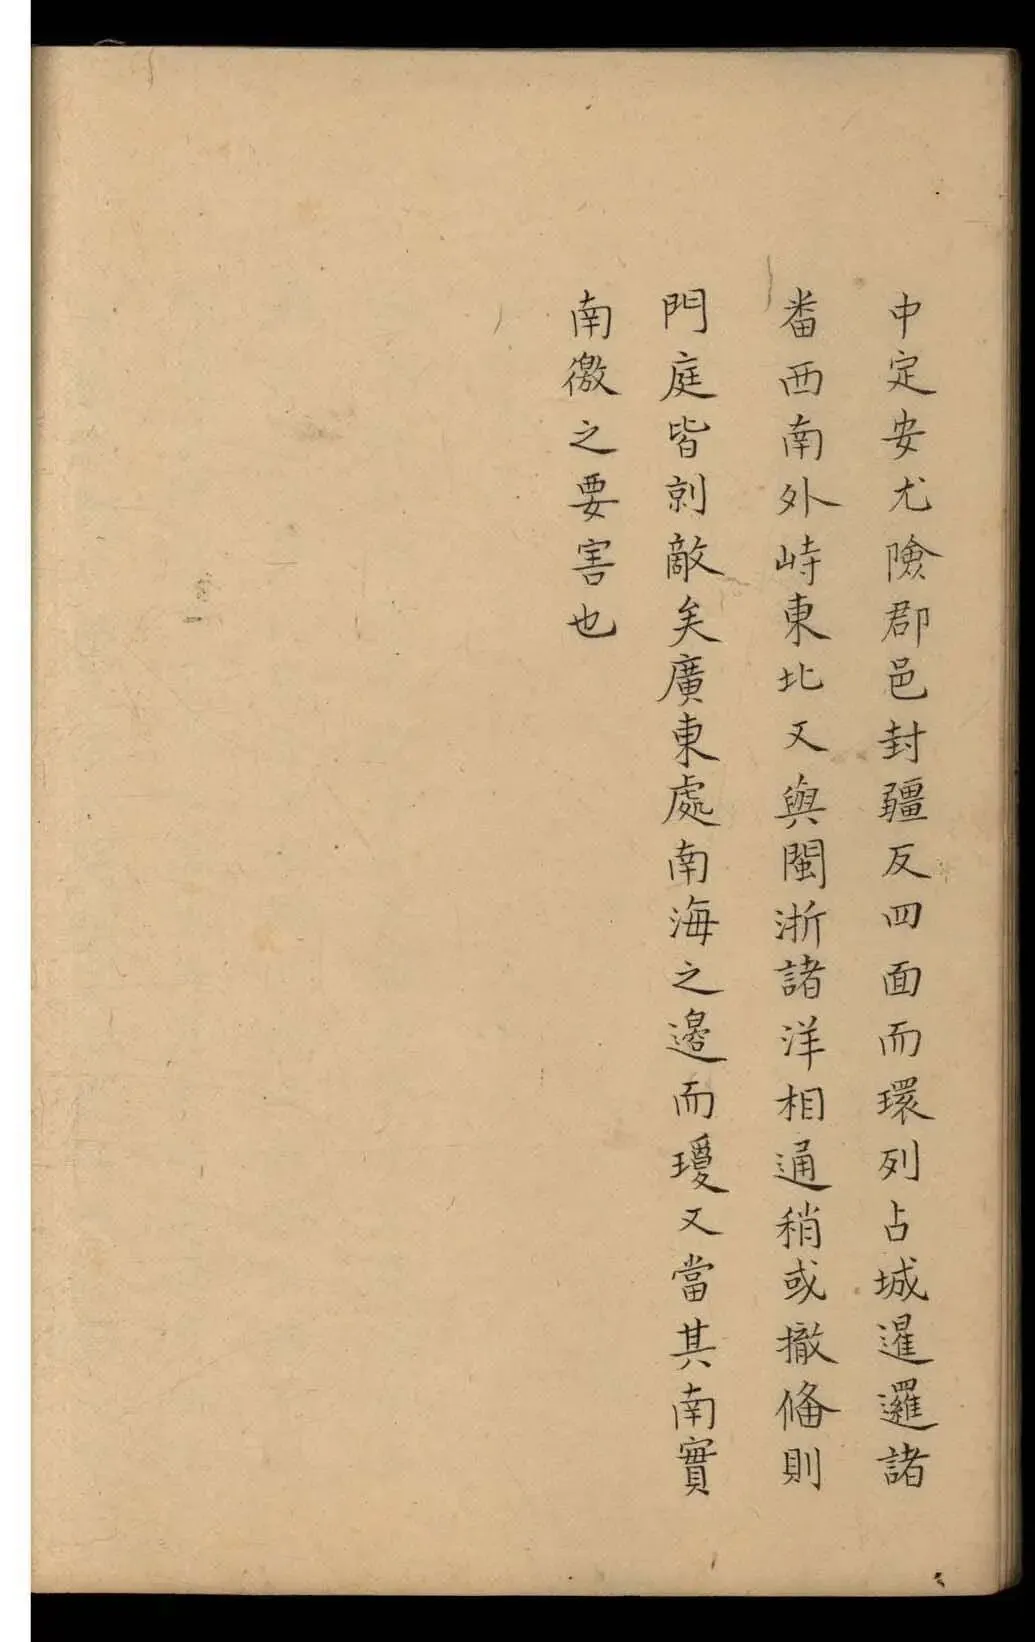 中定安尤險郡邑封疆反四面而環列占城暹邏諸
畨西南外峙東北又與閩浙諸洋相通稍或撤俻則
門庭皆剠敵矣廣東處南海之邊而瓊又當其南實
南徼之要害也